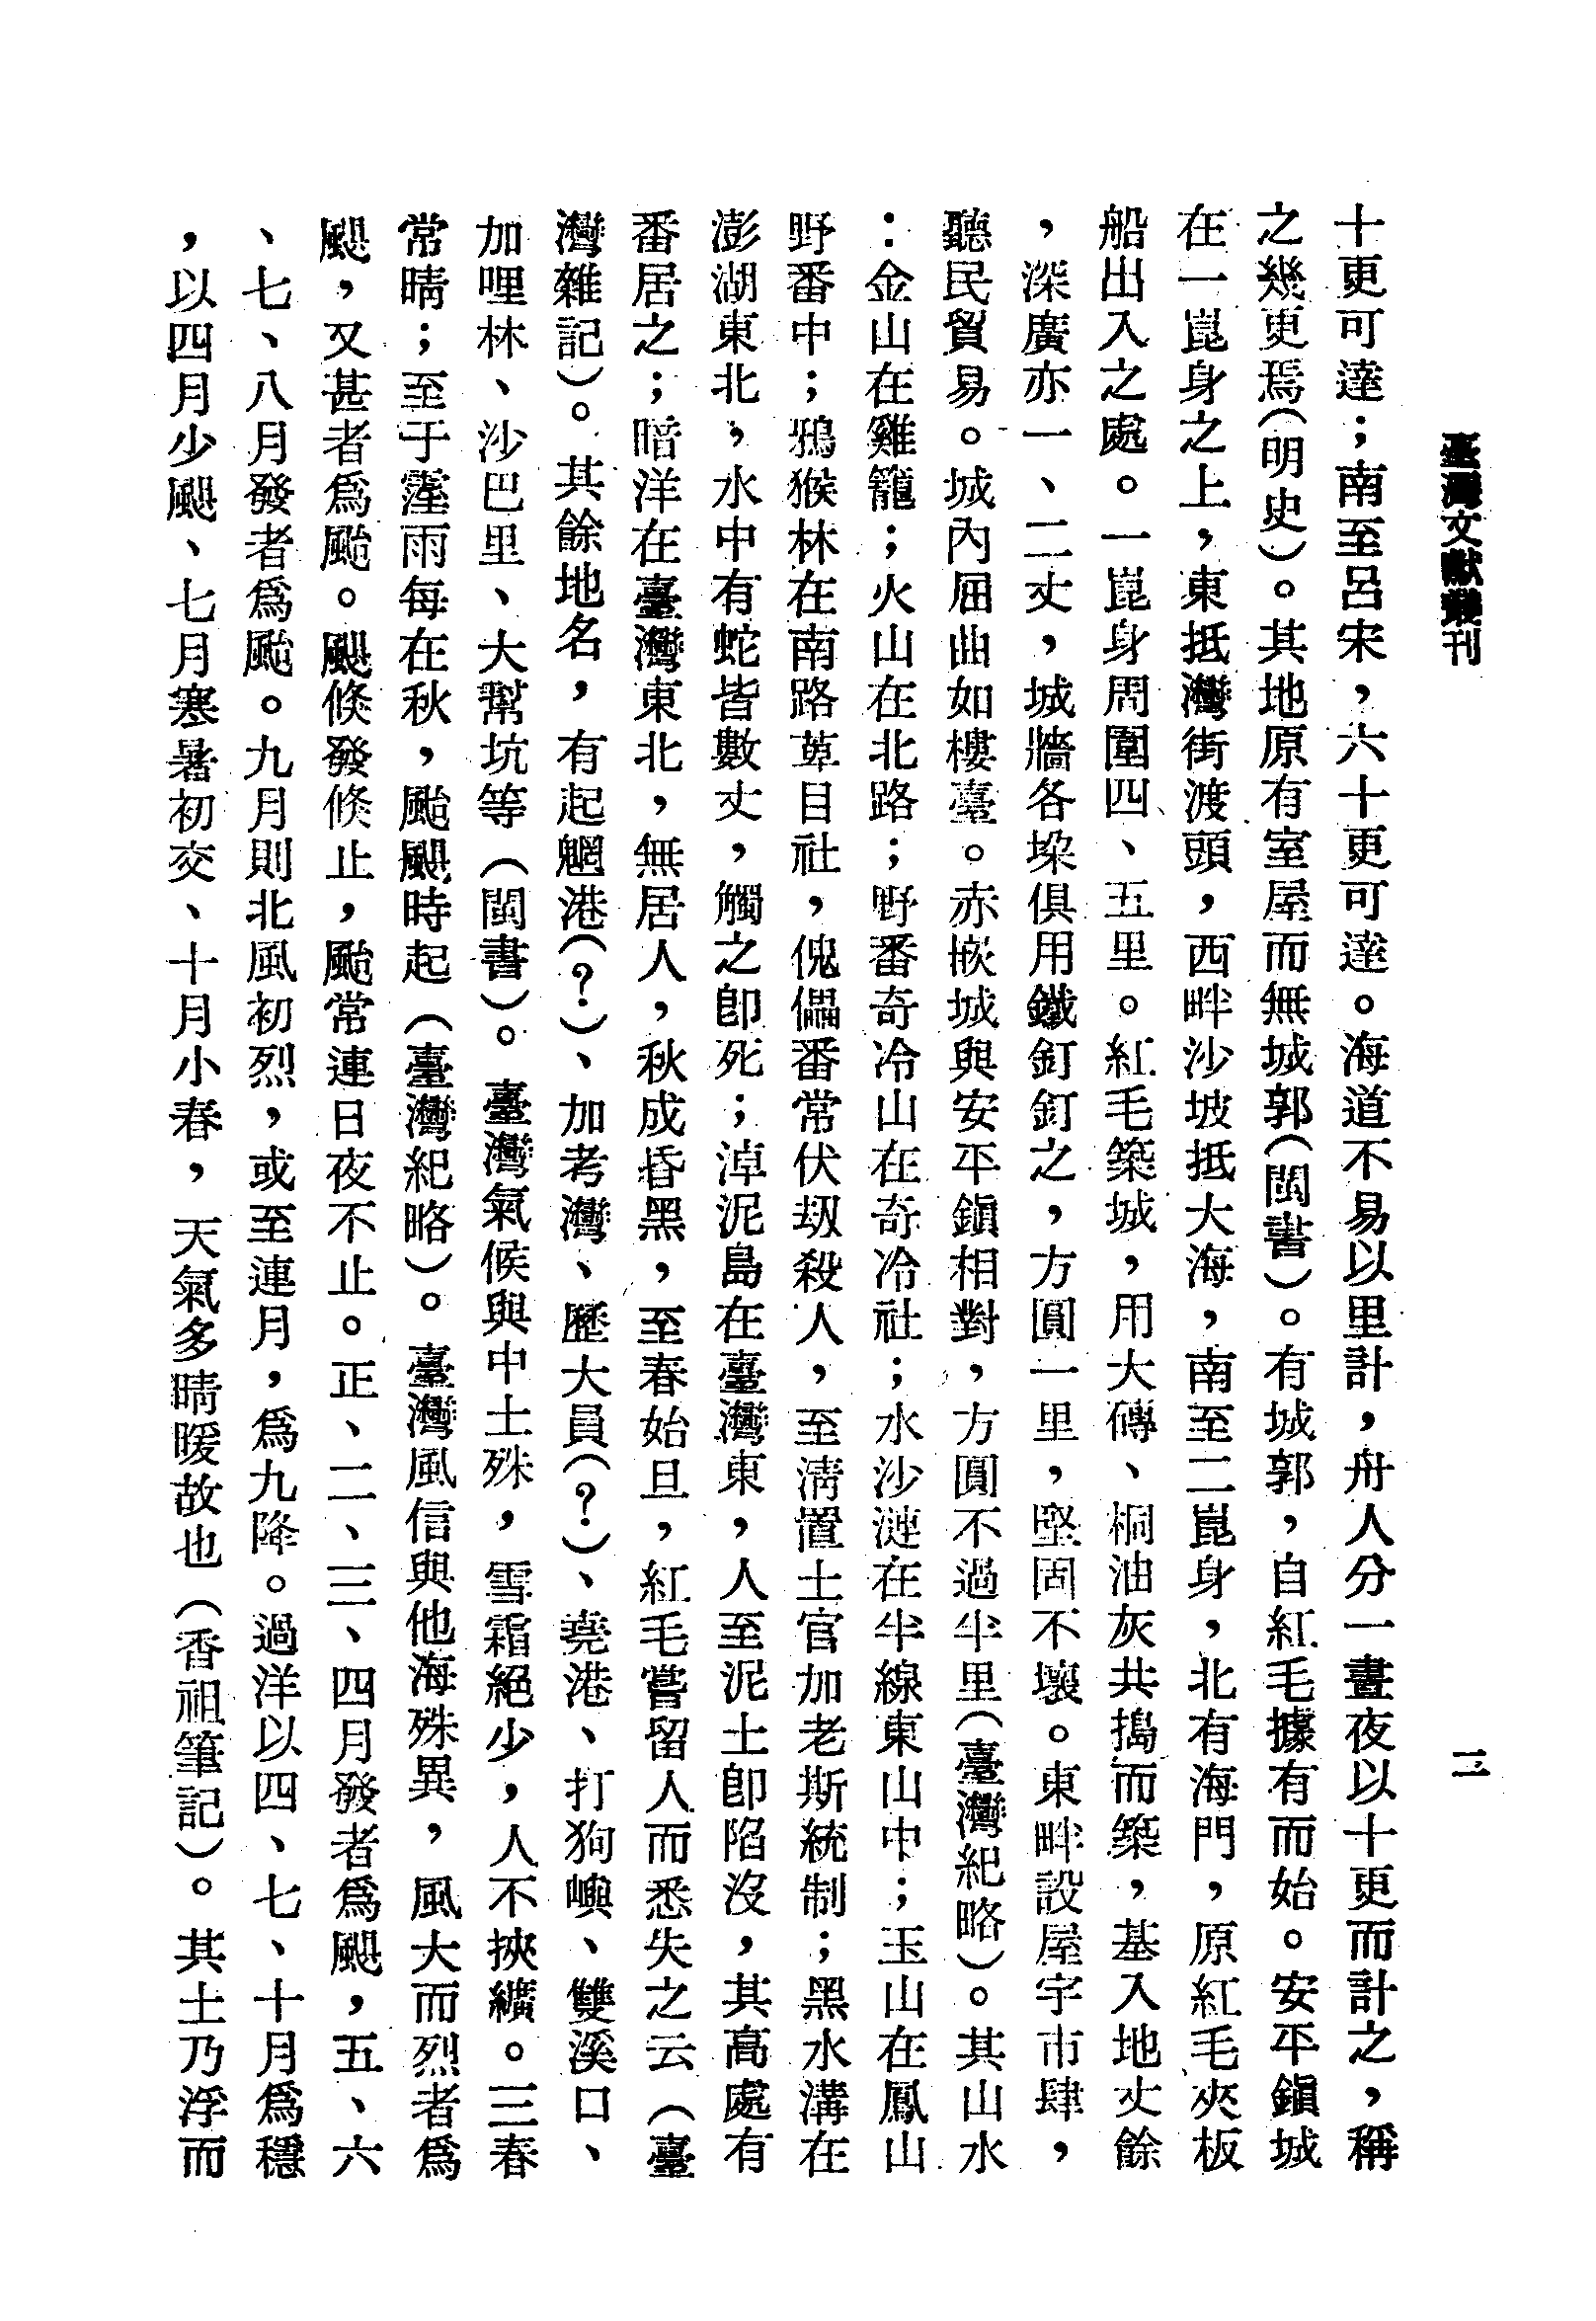 臺灣文獻叢刊
二
十更可達；南至呂宋，六十更可達。海道不易以里計，舟人分一晝夜以十更而計之，稱
之幾更焉（明史）。其地原有室屋而無城郭（閩書）。有城郭，自紅毛據有而始。安平鎮城
在一崑身之上，東抵灣街渡頭，西畔沙坡抵大海，南至二崑身，北有海門，原紅毛夾板
船出入之處。一崑身周圍四、五里。紅毛築城，用大磚、桐油灰共搗而築，基入地丈餘
，深廣亦一、二丈，城牆各垛俱用鐵釘釘之，方圓一里，堅固不壞。東畔設屋宇市肆，
聽民貿易。城內屈曲如樓臺。赤嵌城與安平鎮相對，方圓不過半里（臺灣紀略）。其山水
：金山在雞籠；火山在北路；野番奇冷山在奇冷社；水沙漣在半線東山中；玉山在鳳山
野番中；鴉猴林在南路萆目社，傀儡番常伏刼殺人，至淸置土官加老斯統制；黑水溝在
澎湖東北，水中有蛇皆數丈，觸之卽死；淖泥島在臺灣東，人至泥土卽陷沒，其高處有
番居之；暗洋在臺灣東北，無居人，秋成昏黑，至春始旦，紅毛嘗留人而悉失之云（臺
灣雜記）。其餘地名，有起魍港（？）、加考灣、歷大員（？）、堯港、打狗嶼、雙溪口、
加哩林、沙巴里、大幫坑等（閩書）。臺灣氣候與中土殊，雪霜絕少，人不挾纊。三春
常晴；至于霪雨每在秋，颱颶時起（臺灣紀略）。臺灣風信與他海殊異，風大而烈者爲
颶，又甚者爲颱。颶倏發倏止，颱常連日夜不止。正、二、三、四月發者爲颶，五、六
、七、八月發者爲颱。九月則北風初烈，或至連月，爲九降。過洋以四、七、十月爲穩
，以四月少颶、七月寒暑初交、十月小春，天氣多晴暖故也（香祖筆記）。其土乃浮而